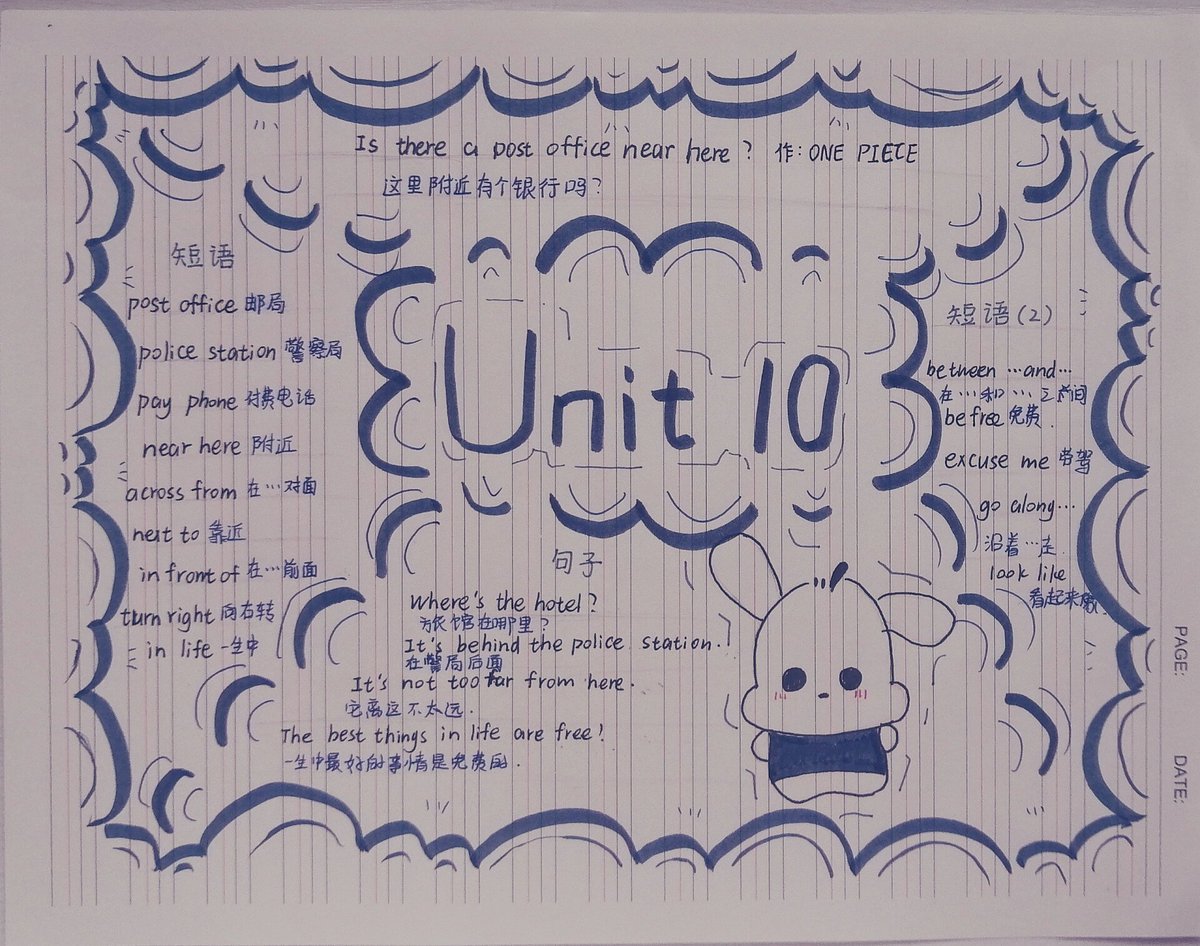 Is there a post office near here? 作: ONE PIECE
这里附近有个银行吗?
短语
post office 邮局
police station 警察局
pay phone 付费电话
near here 附近
across from 在…对面
next to 靠近
in front of 在…前面
turn right 向右转
in life 一生中
Unit 10
短语(2)
between …and…
在…和…之间
be free 免费.
excuse me
go along…
沿着…走.
look like
看起来像.
句子
Where's the hotel?
旅馆在哪里?
It's behind the police station.
在警局后面
It's not too far from here.
它离这不太远.
The best things in life are free!
一生中最好的事情是免费的.
PAGE:
DATE: